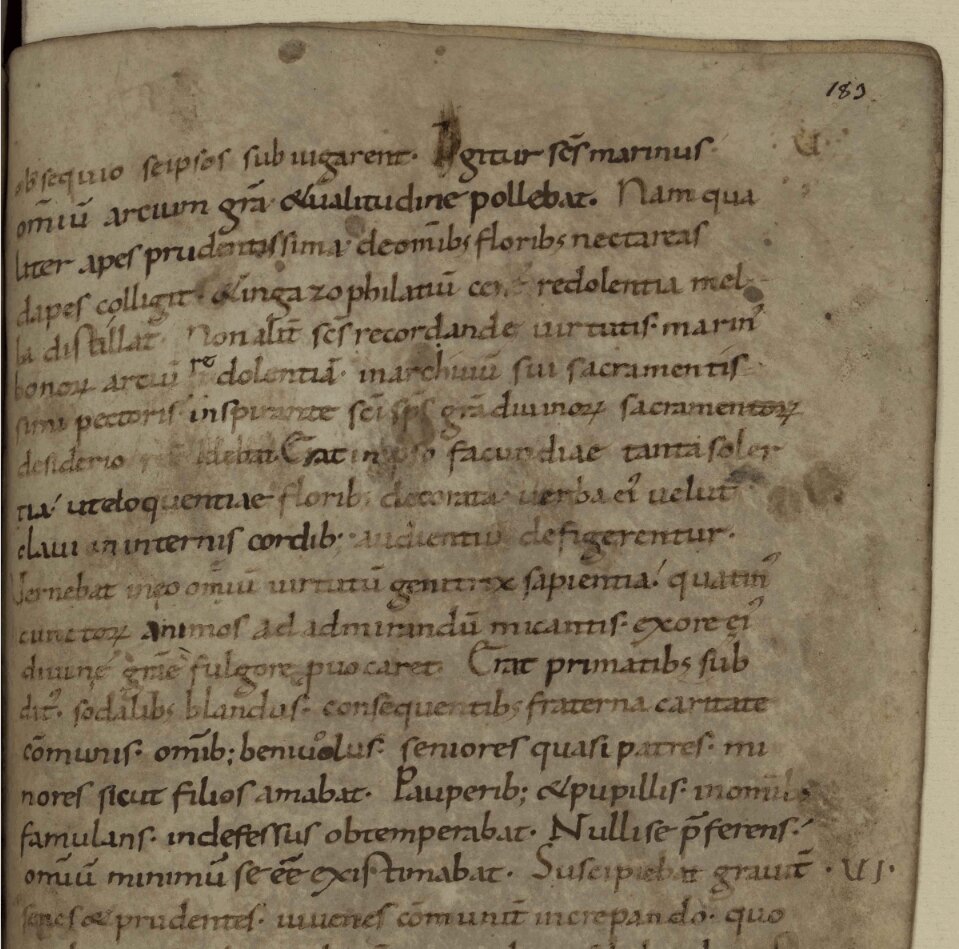 183
obsequio seipsos subiugarent. Igitur scs̄ marinus
om̄iū artium gr̄a &ualitudine pollebat. Nam qua
liter apes prudentissima deomīb; floribs nectareas
dapes colligit. &ingazophilatiū redolentia mel
la distillat. Non alit̄ scs̄ recordande uirtutis. marin᾽
bonoꝝ artiū redolentiā. inarchiuū sui sacramentis
simi pectoris. inspirante scī sps̄ gr̄a diuinoꝝ sacramentoꝝ
desiderio Erat in ipso facundiae tanta soler
tia. uteloquentiae florib; decorata uerba ei᾽ uelut
claui ininternis cordib; audientiū defigerentur.
ineo om̄iū uirtutū genitrix sapientia. quatin᾽
cunctoꝝ animos ad admirandū micantis. exore ei᾽
diuinę gr̄ae fulgore ꝓuocaret. Erat primatib; sub
dit᾽. sodalib; blandus. consequentib; fraterna caritate
cōmunis. om̄ib; beniuolus. seniores quasi patres. mi
nores sicut filios amabat. Pauperib; &pupillis. inomīb;
famulans. indefessus obtemperabat. Nulli se p̄ferens.
om̄iū minimū se ee᷎ existimabat. Suscipiebat grauit̄ · VI.
senes & prudentes. iuuenes cōmunit̄ increpando. quo